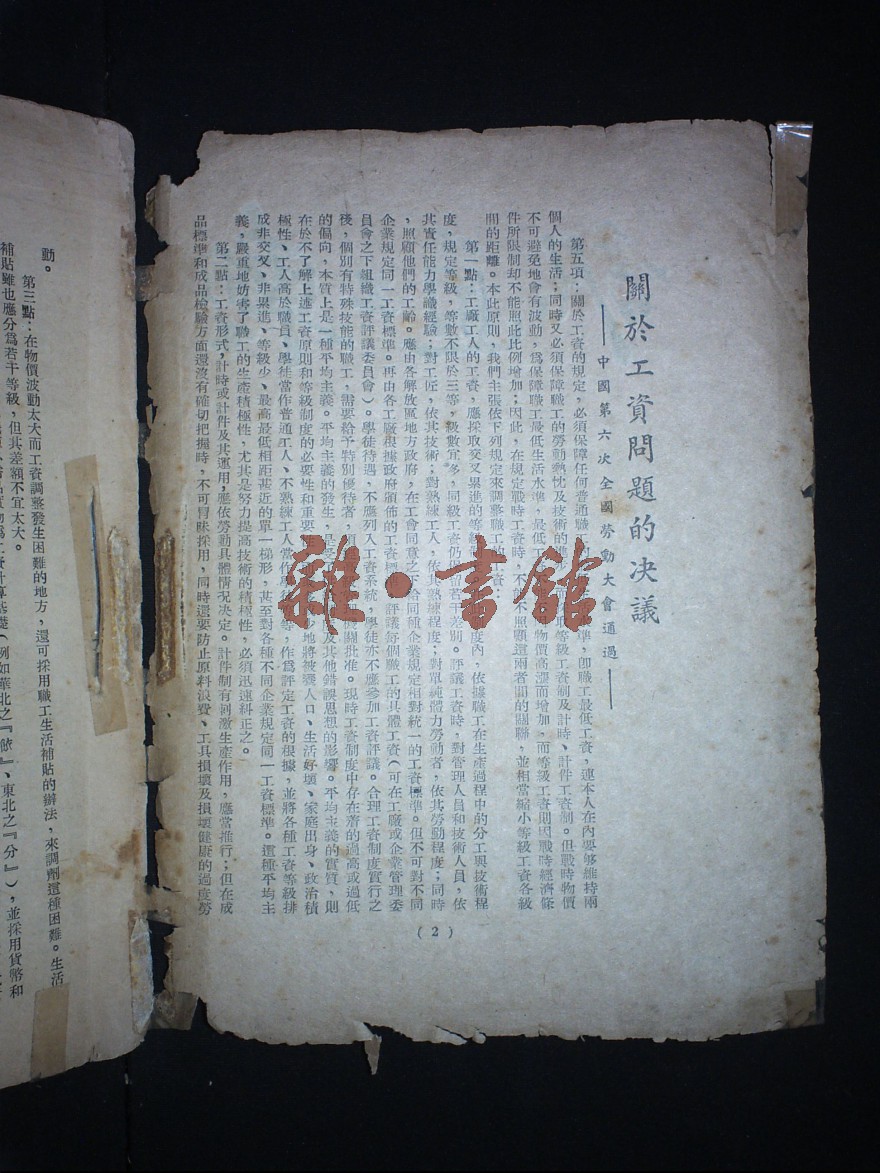 關於工資問題的決議
——中國第六次全國勞動大會通過——
第五項：關於工資的規定，必須保障任何普通職 準，卽職工最低工資，連本人在內要够維持兩
個人的生活；同時又必須保障職工的勞動熱忱及技術的進 取等級工資制及計時、計件工資制。但戰時物價
不可避免地會有波動，爲保障職工最低生活水準，最低工 物價高漲而增加，而等級工資則因戰時經濟條
件所限制却不能照此比例增加；因此，在規定戰時工資時，不 不照顧這兩者間的關聯，並相當縮小等級工資各級
間的距離。本此原則，我們主張依下列規定來調整職工的 資：
第一點：工廠工人的工資，應採取交叉累進的等級 度內，依據職工在生產過程中的分工與技術程
度，規定等級，等數不限於三等，級數宜多，同級工資仍 留若干差別。評議工資時，對管理人員和技術人員，依
其責任能力學識經驗；對工匠，依其技術；對熟練工人，依其熟練程度；對單純體力勞動者，依其勞動程度；同時
，照顧他們的工齡。應由各解放區地方政府，在工會同意之下給同種企業規定相對統一的工資標準。但不可對不同
企業規定同一工資標準。再由各工廠根據政府頒佈的工資標準 評議每個職工的具體工資（可在工廠或企業管理委
員會之下組織工資評議委員會）。學徒待遇，不應列入工資系統，學徒亦不應參加工資評議。合理工資制度實行之
後，個別有特殊技能的職工，需要給予特別優待者， 關批准。現時工資制度中存在着的過高或過低
的偏向，本質上是一種平均主義。平均主義的發生，是受 及其他錯誤思想的影響。平均主義的實質，則
在於不了解上述工資原則和等級制度的必要性和重要性 少地將被養人口、生活好壞、家庭出身、政治積
極性、工人高於職員、學徒當作普通工人、不熟練工人當作 等，作爲評定工資的根據，並將各種工資等級排
成非交叉、非累進、等級少、最高最低相距甚近的單一梯形，甚至對各種不同企業規定同一工資標準。這種平均主
義，嚴重地妨害了職工的生產積極性，尤其是努力提高技術的積極性，必須迅速糾正之。
第二點：工資形式，計時或計件及其運用，應依勞動具體情況決定。計件制有刺激生產作用，應當推行；但在成
品標準和成品檢驗方面還沒有確切把握時，不可冒昧採用，同時還要防止原料浪費、工具損壞及損壞健康的過度勞
（2）
動。
第三點：在物價波動太大而工資調整發生困難的地方，還可採用職工生活補貼的辦法，來調劑這種困難。生活
補貼雖也應分爲若干等級，但其差額不宜太大。
工資計算基礎（例如華北之『 』、東北之『分』），並採用貨幣和
雜·書館